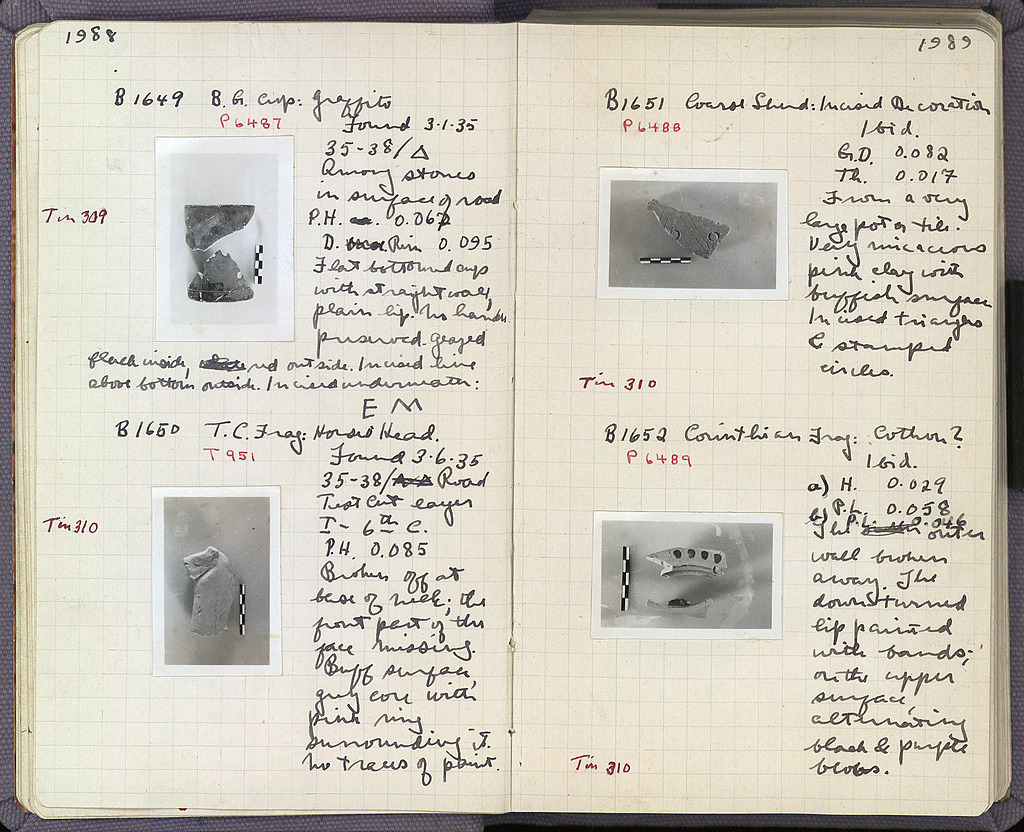 1988
B1649 B.G. Cup: Graffito
P6487
Found 3.1.35
35-38/Δ
Among stones
in surface of road
Tin 309
P.H. 0.067
D. Rim 0.095
Flat bottomed cup
with straight wall,
plain lip. No handle
preserved. glazed
black inside, red outside. Incised line
above bottom outside. Incised underneath:
E M
B1650 T.C. Frag: Horse's Head.
T951
Found 3.6.35
35-38/ Road
Test Cut layer
I - 6th C.
Tin 310
P.H. 0.085
Broken off at
base of neck; the
front part of the
face missing.
Buff surface,
grey core with
pink ring
surrounding it.
No traces of paint.
1989
B1651 Coarse Sherd: Incised Decoration
P6488
Ibid.
G.D. 0.082
Th. 0.017
From a very
large pot or tile.
Very micaceous
pink clay with
buffish surface
Incised triangles
& stamped
circles.
Tin 310
B1652 Corinthian Frag: Cothon?
P6489
Ibid.
a) H. 0.029
P.L. 0.058
b) P.L. 0.046
The outer
wall broken
away. The
downturned
lip painted
with bands;
on the upper
surface,
alternating
black & purple
blobs.
Tin 310